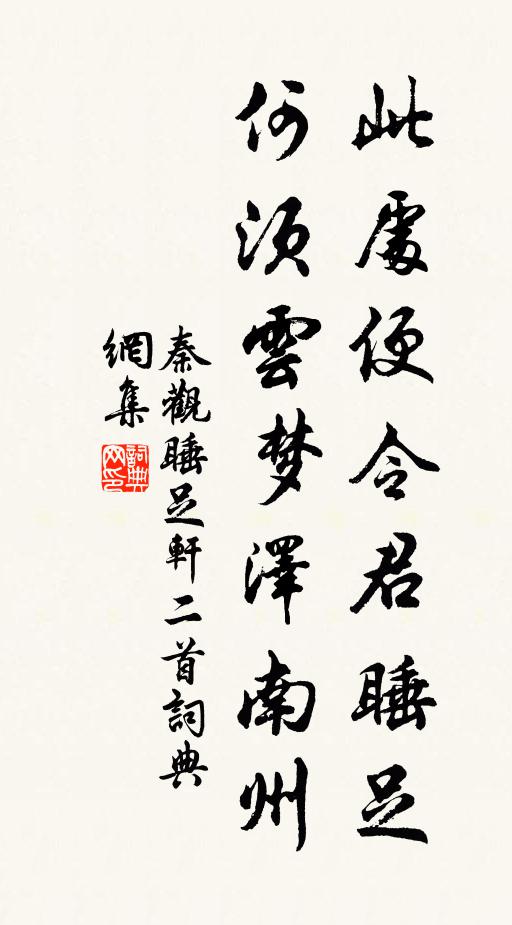 此處便令君睡足
何須雲梦澤南州
秦觀睡足軒二首詞典
網集
詞典网印